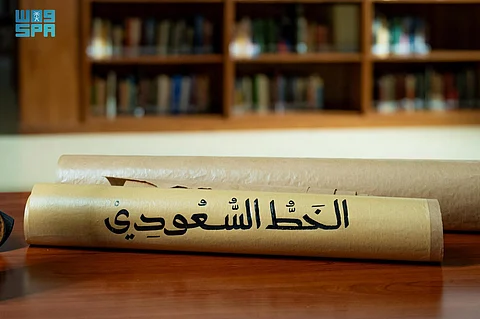 واس
SPA
الخَطُّ السُّعُودِيْ